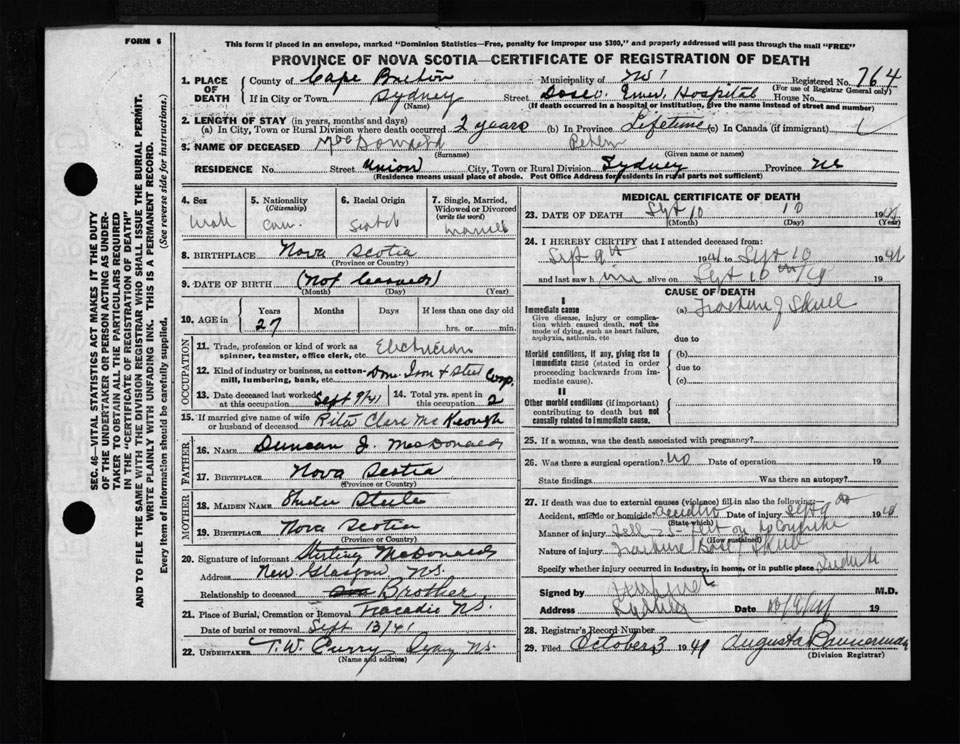 FORM 6
This form if placed in an envelope, marked "Dominion Statistics—Free, penalty for improper use $300," and properly addressed will pass through the mail "FREE"
PROVINCE OF NOVA SCOTIA—CERTIFICATE OF REGISTRATION OF DEATH
SEC. 46—VITAL STATISTICS ACT MAKES IT THE DUTY
OF THE UNDERTAKER OR PERSON ACTING AS UNDER-
TAKER TO OBTAIN ALL THE PARTICULARS REQUIRED
IN THE "CERTIFICATE OF REGISTRATION OF DEATH"
AND TO FILE THE SAME WITH THE DIVISION REGISTRAR WHO SHALL ISSUE THE BURIAL PERMIT.
WRITE PLAINLY WITH UNFADING INK. THIS IS A PERMANENT RECORD.
Every item of information should be carefully supplied. (See reverse side for instructions.)
1. PLACE OF DEATH
County of Cape Breton Municipality of Registered No. 764
(For use of Registrar General only)
If in City or Town Sydney Street Hospital House No.
(Name) (If death occurred in a hospital or institution, give the name instead of street and number)
2. LENGTH OF STAY (in years, months and days)
(a) In City, Town or Rural Division where death occurred 2 years (b) In Province Lifetime (c) In Canada (if immigrant)
3. NAME OF DECEASED
(Surname) (Given name or names)
RESIDENCE No. Street Union City, Town or Rural Division Sydney Province NS
(Residence means usual place of abode. Post Office Address for residents in rural parts not sufficient)
4. Sex
Male
5. Nationality
(Citizenship)
Can.
6. Racial Origin
Scotch
7. Single, Married, Widowed or Divorced
(write the word)
Married
8. BIRTHPLACE Nova Scotia
(Province or Country)
9. DATE OF BIRTH (Not
(Month) (Day) (Year)
10. AGE in Years Months Days If less than one day old
27 hrs. or min.
OCCUPATION
11. Trade, profession or kind of work as spinner, teamster, office clerk, etc. Electrician
12. Kind of industry or business, as cotton-mill, lumbering, bank, etc. Dom. Iron & Steel Corp.
13. Date deceased last worked at this occupation Sept 9/41
14. Total yrs. spent in this occupation 2
15. If married give name of wife or husband of deceased Rita Clare McKeough
FATHER
16. NAME Duncan J. McDonald
17. BIRTHPLACE Nova Scotia
(Province or Country)
MOTHER
18. MAIDEN NAME Steele
19. BIRTHPLACE Nova Scotia
(Province or Country)
20. Signature of informant Stirling McDonald
Address New Glasgow N.S.
Relationship to deceased Brother
21. Place of Burial, Cremation or Removal Tracadie N.S.
Date of burial or removal Sept 13/41
22. UNDERTAKER T.W. Curry Sydney N.S.
(Name and address)
MEDICAL CERTIFICATE OF DEATH
23. DATE OF DEATH Sept 10 19
(Month) (Day) (Year)
24. I HEREBY CERTIFY that I attended deceased from:
Sept 9th 1941 to Sept 10 1941
and last saw him alive on Sept 10 19
CAUSE OF DEATH
I
Immediate cause
Give disease, injury or complication which caused death, not the mode of dying, such as heart failure, asphyxia, asthenia, etc
(a) Fracture of Skull
due to
Morbid conditions, if any, giving rise to immediate cause (stated in order proceeding backwards from immediate cause).
(b)
due to
(c)
II
Other morbid conditions (if important) contributing to death but not causally related to immediate cause.
25. If a woman, was the death associated with pregnancy?
26. Was there a surgical operation? No Date of operation 19
State findings Was there an autopsy?
27. If death was due to external causes (violence) fill in also the following:—
Accident, suicide or homicide? Accident Date of injury Sept 9 19
(State which)
Manner of injury Fell 25 feet on to
(How sustained)
Nature of injury Fracture Base of Skull
Specify whether injury occurred in industry, in home, or in public place
Signed by M.D.
Address Sydney Date 10/9/41 19
28. Registrar's Record Number
29. Filed October 3 1941 Augusta
(Division Registrar)